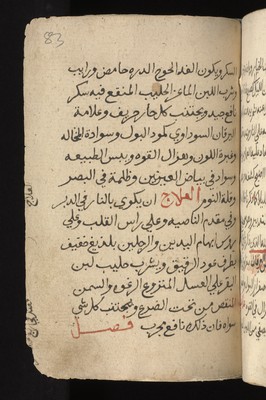 83
السكر ويكون الغذا الحوج الدره حامض ورايب
وشرب اللبن الماعز الحليب المنقع فيه سكر
نافع جيد ويجتنب كل حار حريف وعلامة
اليرقان السوداوي كمود البول وسواده الحاله
وغبرة اللون وهزال القوه ويبس الطبيعه
وسواد في بياض العينين وظلمة في البصر
وقلة النوم العلاج ان يكوى بالنار في الدبر
وفي مقدم الناصيه وعلى راس القلب وعلى
روس ابهام اليدين والرجلين بلذيغ خفيف
بطرف عود الرقيق ويشرب حليب لبن
البقر على العسل المنزوع الرغوه والسمن
من تحت الضرع ويجتنب كل شي
سواه فان ذلك نافع مجرب فصل
العلاج